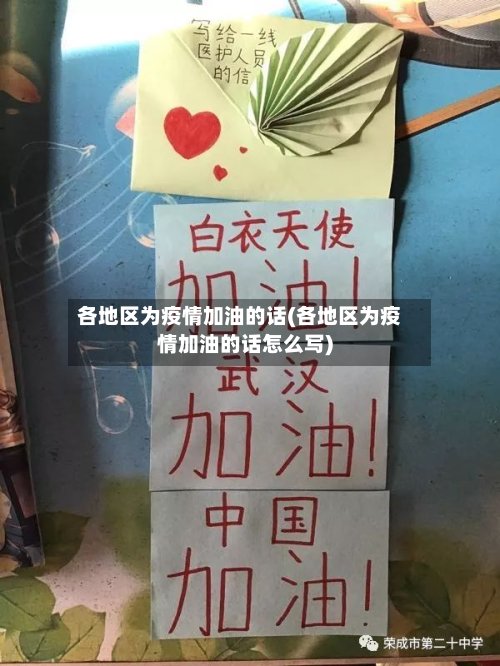 写给一线
医护人员
的信
白衣天使
加油!
各地区为疫情加油的话(各地区为疫
情加油的话怎么写)
武汉
加油!
中国
加油!
荣成市第二十中学